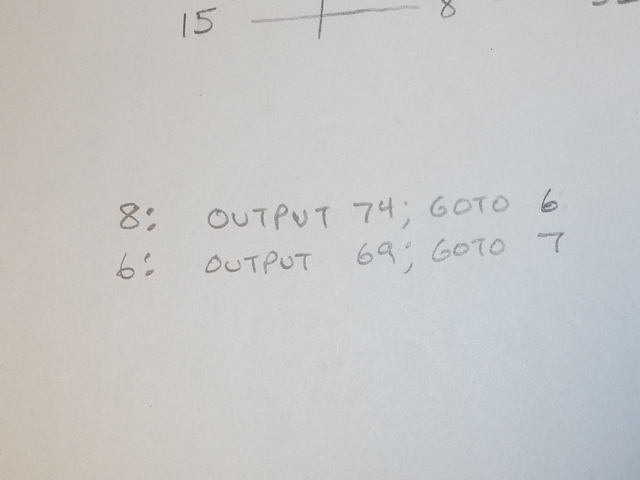 15 8
8: OUTPUT 74; GOTO 6
6: OUTPUT 69; GOTO 7